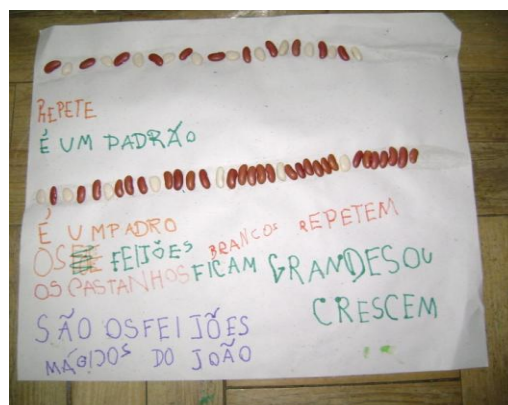 REPETE
É UM PADRÃO
É UMPADRO
OS FEIJÕES BRANCOS REPETEM
OS CASTANHOS FICAM GRANDESOU
CRESCEM
SÃO OSFEIJÕES
MÁGIDOS DO JOÃO